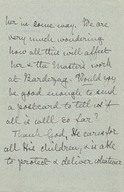 her in some way. We are
very much wondering
how all this will affect
her & the Master's work
at Bardezag. Would you
be good enough to send
a postcard to tell us if
all is well so far?
Thank God, He cares for
all His children, & is able
to protect & deliver, whatever